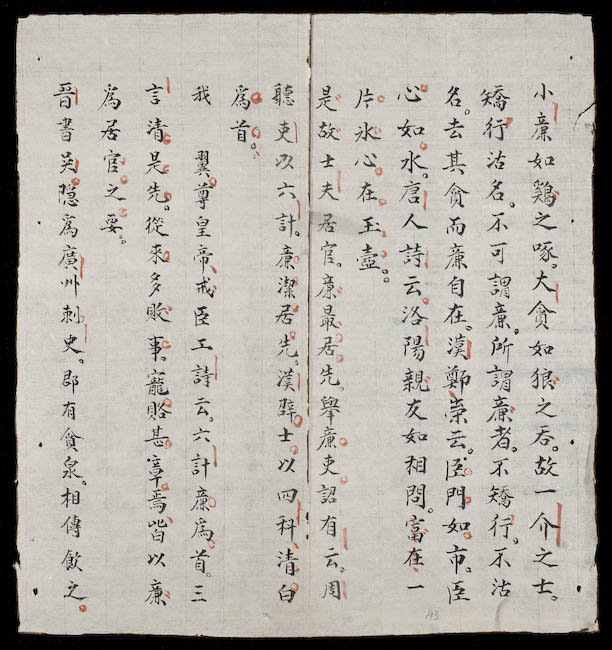 小廉如鷄之啄。大貪如狼之吞。故一介之士。
矯行沽名。不可謂廉。所謂廉者。不矯行。不沽
名。去其貪而廉自在。漢鄭崇云。臣門如市。臣
心如水。唐人詩云。洛陽親友如相問。富在一
片氷心在玉壺。
是故士夫居官。廉最居先。舉廉吏詔有云。周
聽吏以六計。廉潔居先。漢辟士。以四科清白
爲首。
我 翼尊皇帝戒臣工詩云。六計廉爲首。三
言清是先。從來多敗事。寵賂甚章焉。皆以廉
爲居官之要。
晉書吳隱爲廣州刺史。郡有貪泉。相傳飲之。
43